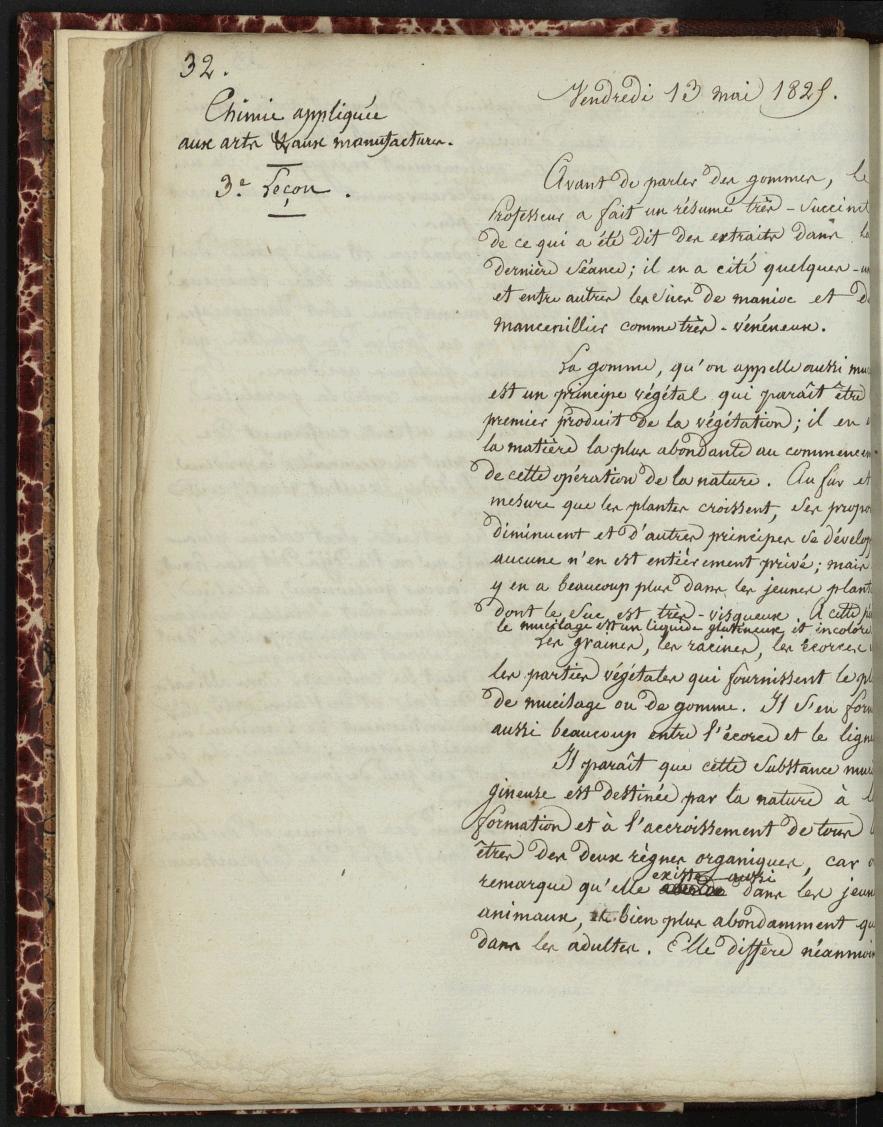 32.
Vendredi 13 mai 1825.
Chimie appliquée
aux arts & aux manufactures.
3.e Leçon.
Avant de parler des gommes, le
Professeur a fait un résumé très-succinct
de ce qui a été dit des extraits dans la
dernière séance; il en a cité quelques-un
et entre autres les sucs de manioc et de
mancenillier comme très-vénéneux.
La gomme, qu'on appelle aussi muc
est un principe végétal qui paraît être
premier produit de la végétation; il en
la matière la plus abondante au commencem
de cette opération de la nature. Au fur et
mesure que les plantes croissent, ses propor
diminuent et d'autres principes se dévelop
aucune n'en est entièrement privé; mais
y en a beaucoup plus dans les jeunes plant
dont le suc est très-visqueux. A cette
le mucilage est un liquide glutineux et incolore
Les graines, les racines, les écorces
les parties végétales qui fournissent le pl
de mucilage ou de gomme. Il s'en form
aussi beaucoup entre l'écorce et le ligne
Il paraît que cette substance muci
gineuse est destinée par la nature à l
formation et à l'accroissement de tous
êtres des deux règnes organiques, car o
existe aussi
remarque qu'elle dans les jeun
animaux, et bien plus abondamment qu
dans les adultes. Elle diffère néanmoin